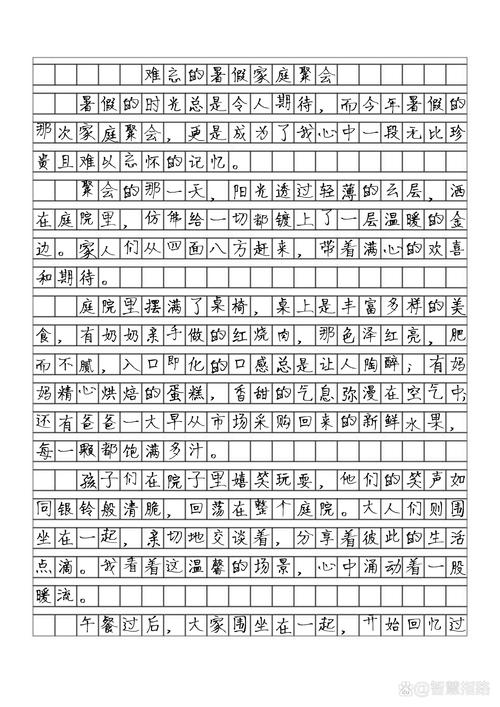 难忘的暑假家庭聚会
暑假的时光总是令人期待，而今年暑假的
那次家庭聚会，更是成为了我心中一段无比珍
贵且难以忘怀的记忆。
聚会的那一天，阳光透过轻薄的云层，洒
在庭院里，仿佛给一切都镀上了一层温暖的金
边。家人们从四面八方赶来，带着满心的欢喜
和期待。
庭院里摆满了桌椅，桌上是丰富多样的美
食，有奶奶亲手做的红烧肉，那色泽红亮，肥
而不腻，入口即化的口感总是让人陶醉；有妈
妈精心烘焙的蛋糕，香甜的气息弥漫在空气中；
还有爸爸一大早从市场采购回来的新鲜水果，
每一颗都饱满多汁。
孩子们在院子里嬉笑玩耍，他们的笑声如
同银铃般清脆，回荡在整个庭院。大人们则围
坐在一起，亲切地交谈着，分享着彼此的生活
点滴。我看着这温馨的场景，心中涌动着一股
暖流。
午餐过后，大家围坐在一起，开始回忆过
智慧指路